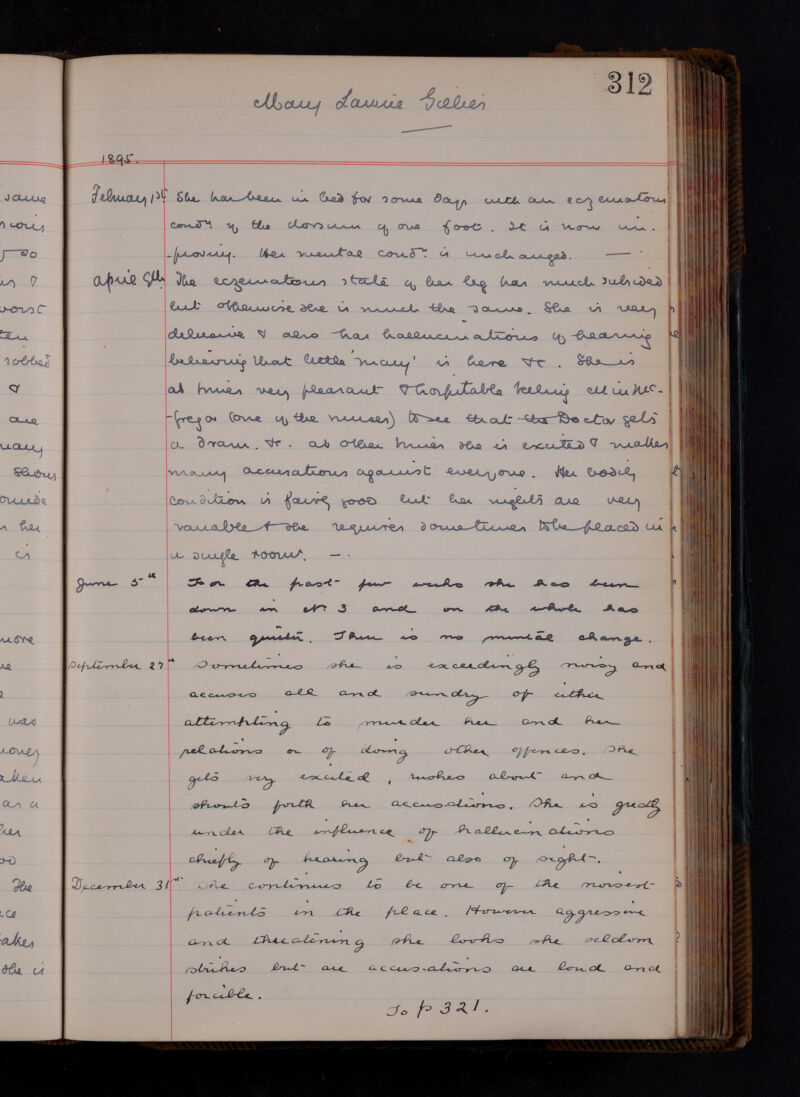 312
Mary Lawrie Gillies
1895.
February 1st She has been in bed for some days with an eczematous
condn of the dorsum of one foot. It is now im-
-proving. Her mental condn is unchanged. —
April 9th The eczematous state of her leg has much subsided
but otherwise she is much the same. She is very
delusive & also has hallucinations of hearing
believing that little 'Mary' is here &c. She is
at times very pleasant & hospitable telling
-Gregor (one of the nurses) to see that the Doctor gets
a dram. &c. at other times she is excited & makes
many accusations against everyone. Her bodily
condition is fairly good but her nights are very
variable & she requires sometimes to be placed in
a single room. —.
June 5th For the past few weeks she has been
down in No 3 and on the whole has
been quieter. There is no mental change.
September 27th Sometimes she is exceedingly noisy and
accuses all and sundry of either
attempting to murder her and her
relations or of doing other offences. She
gets very excited, rushes about and
shouts forth her accusations. She is greatly
under the influence of hallucinations
chiefly of hearing but also of sight.
December 31st She continues to be one of the noisest
patients in the place. However aggressive
and threatening she looks she seldom
strikes but are accusations are loud and
forcible.
To p 321.
same
&
worst
robbed
&
are
many
her
is
more
was
money
taken
as a
her
so
She
takes
she is